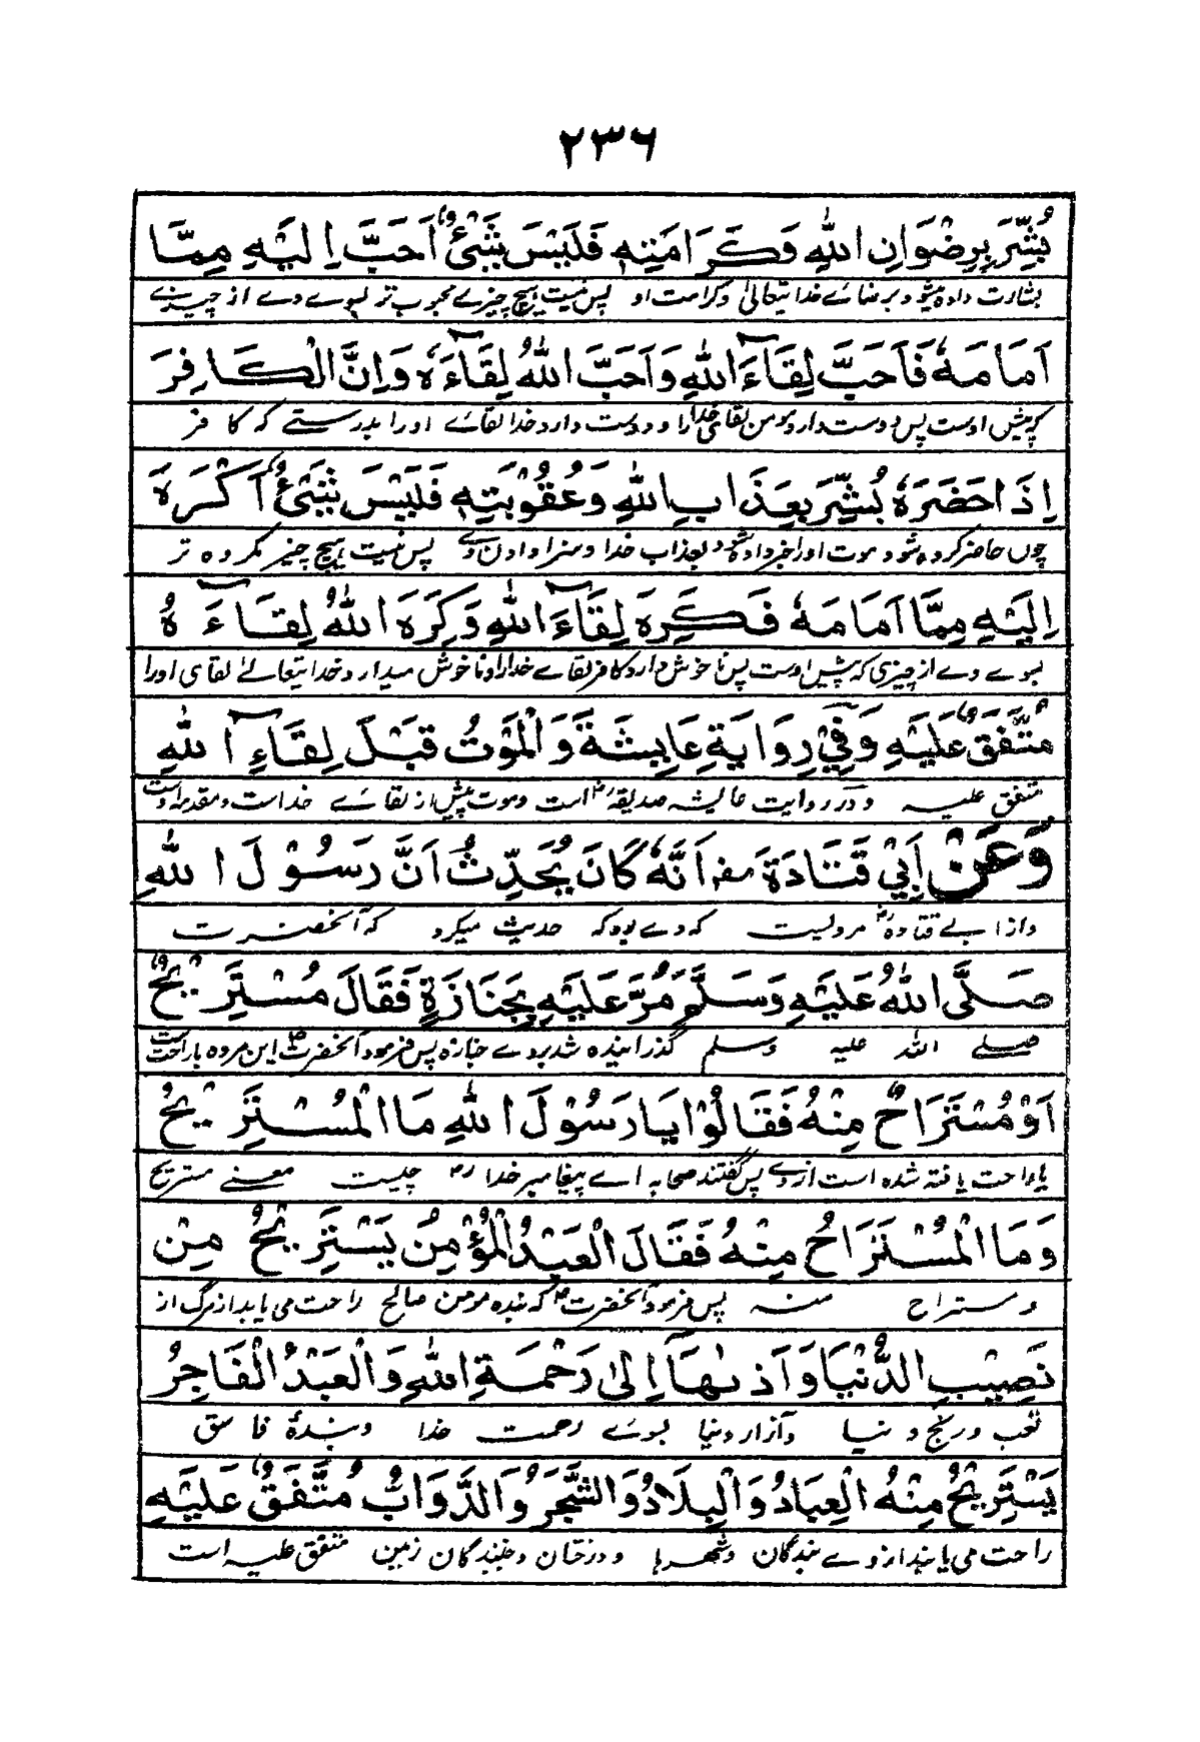 ٢٣٦
بُشِّرَ بِرِضْوَانِ اللهِ وَكَرَامَتِهٖ فَلَيْسَ شَيْئٌ اَحَبَّ اِلَيْهِ مِمَّا
بشارت داده میشود برضائے خدایتعالیٰ وکرامت او پس نیست ہیچ چیزے محبوب تر بسوے وے از چیزے
اَمَامَهٗ فَاَحَبَّ لِقَآءَ اللهِ وَاَحَبَّ اللهُ لِقَآءَهٗ وَاِنَّ الْكَافِرَ
کہ پیش اوست پس دوست دارد مومن لقای خدارا و دوست دارد خدا لقائے اورا بدرستے کہ کافر
اِذَا حَضَرَهٗ بُشِّرَ بِعَذَابِ اللهِ وَعُقُوْبَتِهٖ فَلَيْسَ شَيْئٌ اَكْرَهَ
چوں حاضر کرده شود موت اورا خبر داده شود بعذاب خدا وسزا دادن وے پس نیست ہیچ چیز مکروه تر
اِلَيْهِ مِمَّا اَمَامَهٗ فَكَرِهَ لِقَآءَ اللهِ وَكَرِهَ اللهُ لِقَآءَهُ
بسوے وے از چیزی کہ پیش اوست پس ناخوش دارد کافر لقاے خدارا وناخوش میدارد خدایتعالےٰ لقای اورا
مُتَّفَقٌ عَلَيْهِ وَفِيْ رِوَايَةِ عَايِشَةَ وَالْمَوْتُ قَبْلَ لِقَآءِ اللهِ
متفق علیہ ودر روایت عائشہ صدیقہ رض است وموت پیش از لقائے خداست ومقدمہ اوست
وَعَنْ اَبِيْ قَتَادَةَ رض اَنَّهٗ كَانَ يُحَدِّثُ اَنَّ رَسُوْلَ اللهِ
واز ابے قتاده رض مرویست کہ وے بود کہ حدیث میکرد کہ آنحضرت
صَلَّى اللهُ عَلَيْهِ وَسَلَّمَ مُرَّ عَلَيْهِ بِجَنَازَةٍ فَقَالَ مُسْتَرِيْحٌ
صلے اللہ علیہ وسلم گذرانیده شد بروے جنازه پس فرمود آنحضرت ص این مرده یا راحت است
اَوْ مُسْتَرَاحٌ مِنْهُ فَقَالُوْا يَا رَسُوْلَ اللهِ مَا الْمُسْتَرِيْحُ
یا راحت یافتہ شده است ازوے پس گفتند صحابہ اے پیغامبر خدا ص چیست معنے مستریح
وَمَا الْمُسْتَرَاحُ مِنْهُ فَقَالَ الْعَبْدُ الْمُؤْمِنُ يَسْتَرِيْحُ مِنْ
ومستراح منہ پس فرمود آنحضرت ص کہ بنده مومن صالح راحت می یابد از مرگ از
نَصِيْبِ الدُّنْيَا وَاَذٰىهَآ اِلٰى رَحْمَةِ اللهِ وَالْعَبْدُ الْفَاجِرُ
تعب ورنج دنیا وآزار دنیا بسوئے رحمت خدا وبندۂ فاسق
يَسْتَرِيْحُ مِنْهُ الْعِبَادُ وَالْبِلَادُ وَالشَّجَرُ وَالدَّوَابُّ مُتَّفَقٌ عَلَيْهِ
راحت می یابند ازوے بندگان وشهرها ودرختان وجنبندگان زمین متفق علیہ است